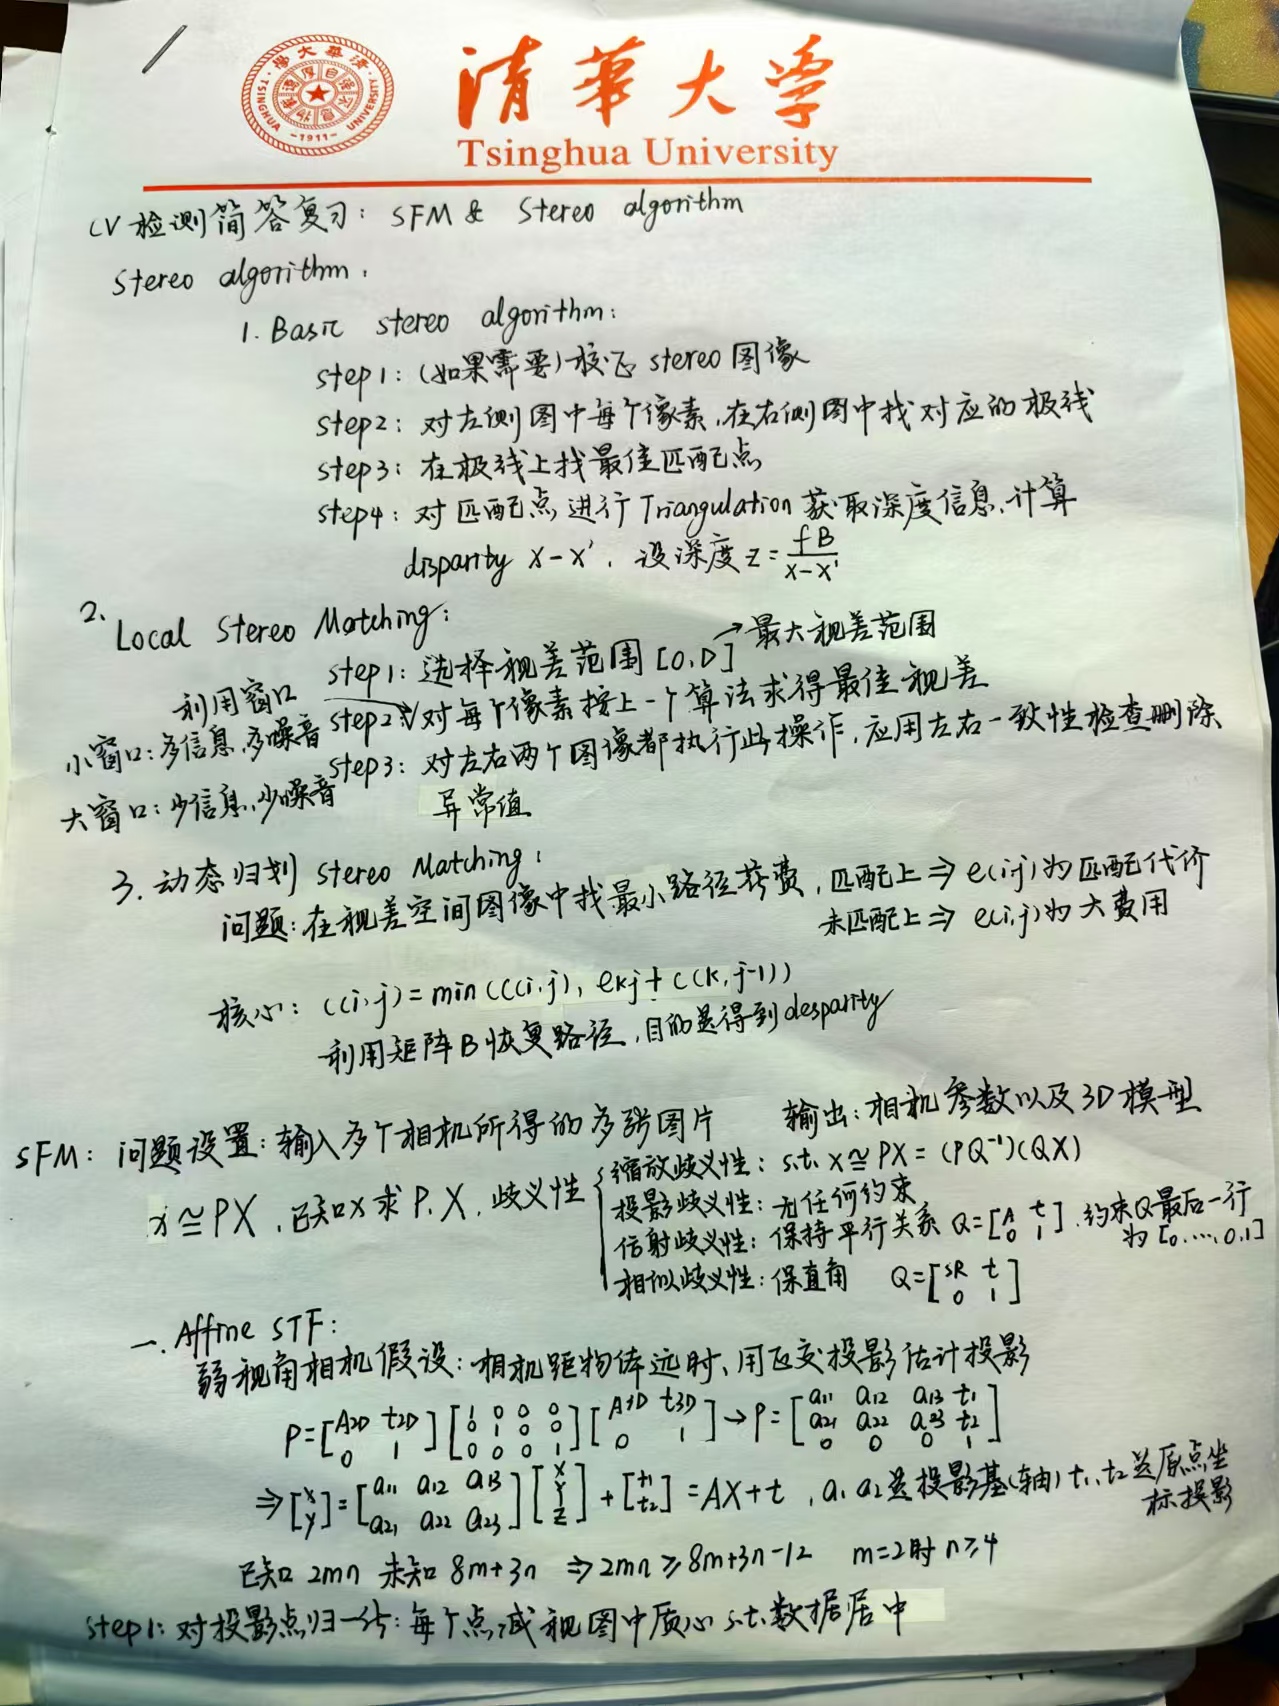 清华大学
Tsinghua University
TSINGHUA UNIVERSITY
-1911-
CV检测简答复习: SFM & Stereo algorithm
Stereo algorithm.
1. Basic stereo algorithm:
step1: (如果需要)校正stereo图像
step2: 对左侧图中每个像素,在右侧图中找对应的极线
step3: 在极线上找最佳匹配点
step4: 对匹配点进行Triangulation获取深度信息,计算
disparity x-x', 设深度 z = fB/(x-x')
2. Local Stereo Matching:
step1: 选择视差范围[0,D] → 最大视差范围
利用窗口 step2: 对每个像素按上一个算法求得最佳视差
小窗口:多信息,多噪音
step3: 对左右两个图像都执行此操作,应用左右一致性检查删除
大窗口:少信息,少噪音
异常值
3. 动态归划 Stereo Matching:
问题:在视差空间图像中找最小路径花费, 匹配上⇒e(i,j)为匹配代价
未匹配上⇒ e(i,j)为大费用
核心: C(i,j)=min(C(i,j), ekj+C(k,j-1))
利用矩阵B恢复路径,目的是得到desparity
SFM: 问题设置:输入多个相机所得的多张图片 输出:相机参数以及3D模型
x≅PX, 已知x求P.X, 歧义性
缩放歧义性: s.t. x≅PX=(PQ⁻¹)(QX)
投影歧义性:无任何约束
仿射歧义性:保持平行关系 Q=[A t; 0 1], 约束Q最后一行为[0,...,0,1]
相似歧义性:保直角 Q=[sR t; 0 1]
一. Affine STF:
弱视角相机假设:相机距物体远时,用正交投影估计投影
P=[A2D t2D; 0 1][1 0 0 0; 0 1 0 0; 0 0 0 1][A3D t3D; 0 1]→P=[a11 a12 a13 t1; a21 a22 a23 t2; 0 0 0 1]
⇒[x; y]=[a11 a12 a13; a21 a22 a23][X; Y; Z]+[t1; t2]=AX+t, a1 a2是投影基(轴) t1,t2是原点坐
标投影
已知2mn 未知8m+3n ⇒2mn≥8m+3n-12 m=2时n≥4
step1: 对投影点归一化:每个点减视图中质心 s.t.数据居中